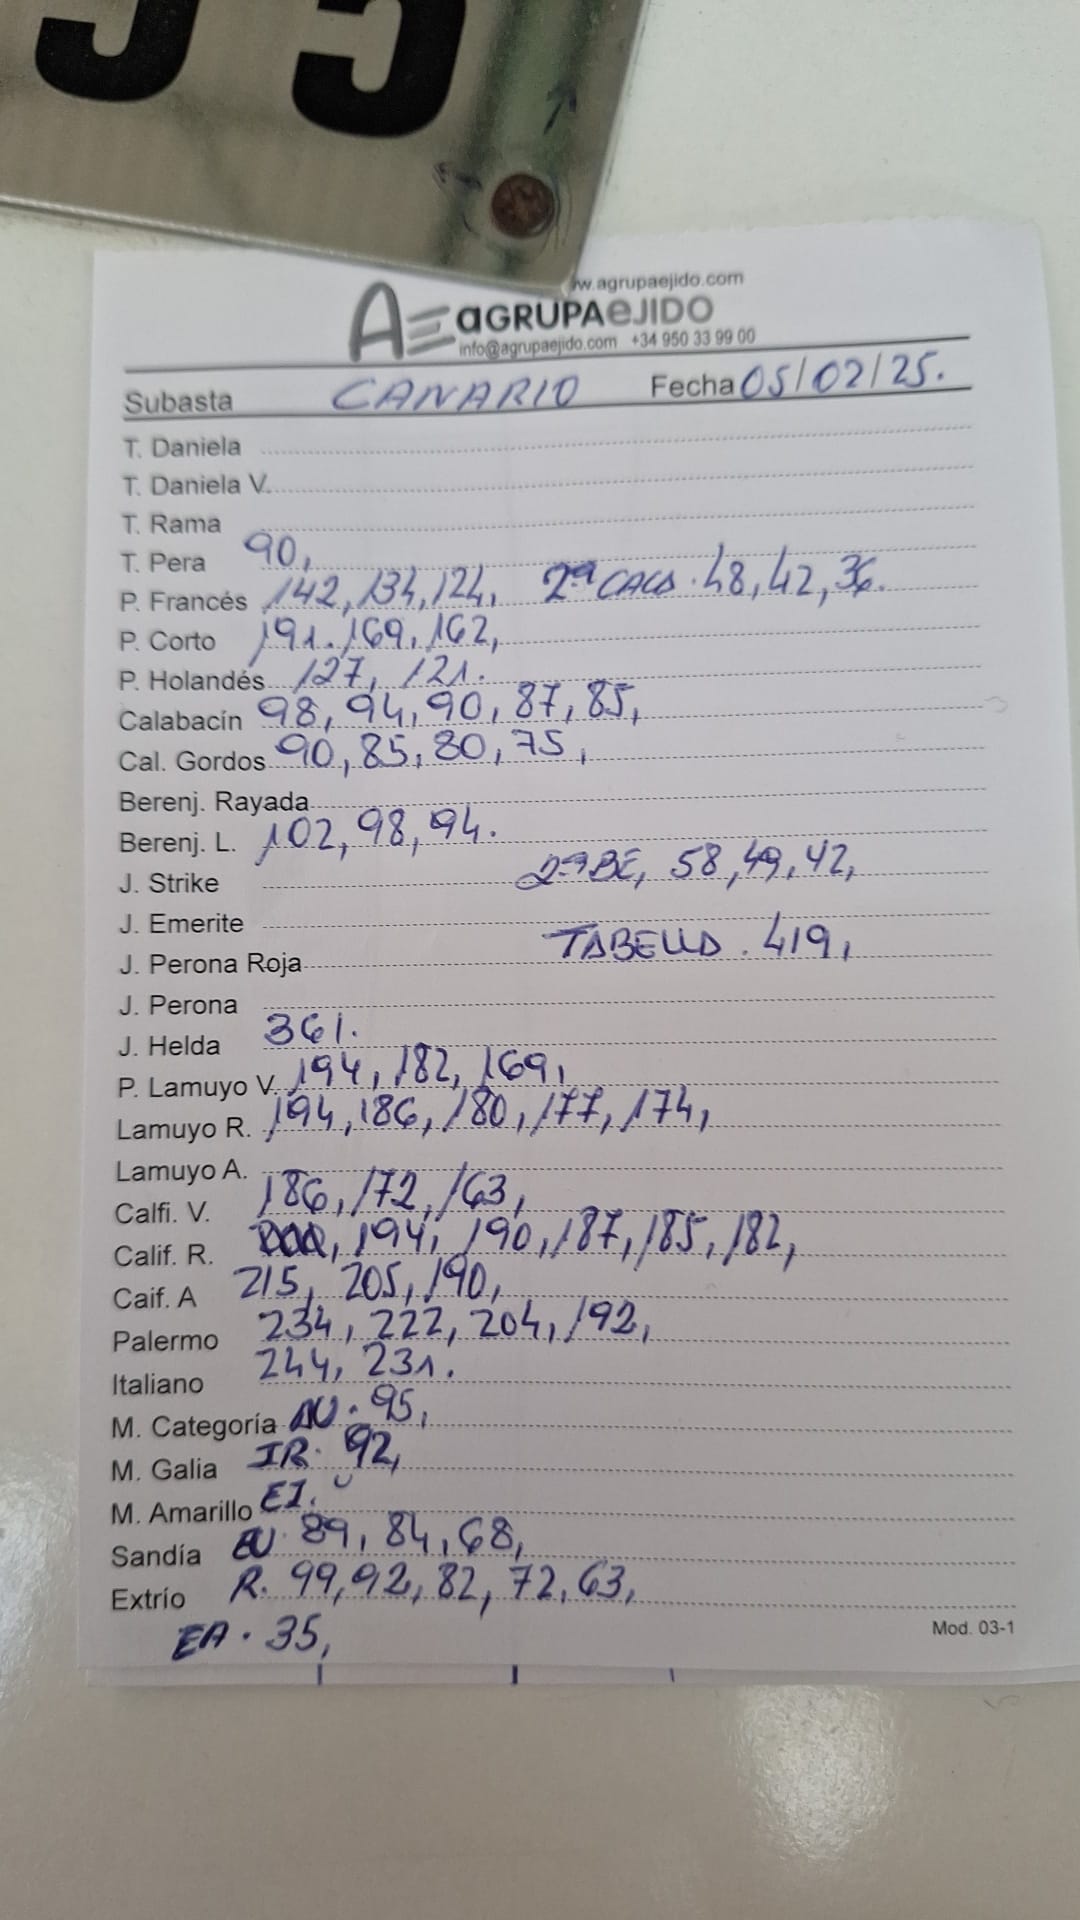 55
w.agrupaejido.com
AE aGRUPAeJIDO
info@agrupaejido.com +34 950 33 99 00
Subasta CANARIO Fecha 05/02/25.
T. Daniela
T. Daniela V.
T. Rama
T. Pera 90,
P. Francés 142, 134, 124, 2ª CALA. 48, 42, 36.
P. Corto 191. 169, 162,
P. Holandés 127, 121.
Calabacín 98, 94, 90, 87, 85,
Cal. Gordos 90, 85, 80, 75,
Berenj. Rayada
Berenj. L. 102, 98, 94.
J. Strike 2ª BE, 58, 49, 42,
J. Emerite
J. Perona Roja TABELLA. 419,
J. Perona
J. Helda 361.
P. Lamuyo V. 194, 182, 169,
Lamuyo R. 194, 186, 180, 177, 174,
Lamuyo A.
Calfi. V. 186, 172, 163,
Calif. R. 194, 190, 187, 185, 182,
Caif. A 215, 205, 190,
Palermo 234, 222, 204, 192,
Italiano 244, 231.
M. Categoría 95,
M. Galia IR. 92,
M. Amarillo EI.
Sandía 89, 84, 68,
Extrío R. 99, 92, 82, 72, 63,
EA. 35,
Mod. 03-1